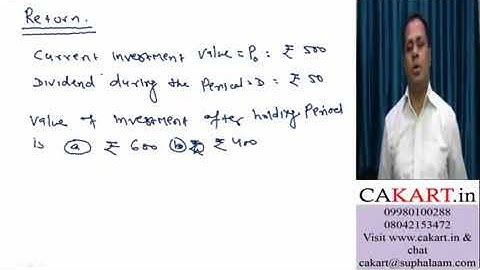 Return.
Current investment value = P₀ : ₹ 500
Dividend during the Period = D : ₹ 50
Value of investment after holding Period
is (a) ₹ 600 (b) ₹ 400
CAKART.in
09980100288
08042153472
Visit www.cakart.in &
chat
cakart@suphalaam.com